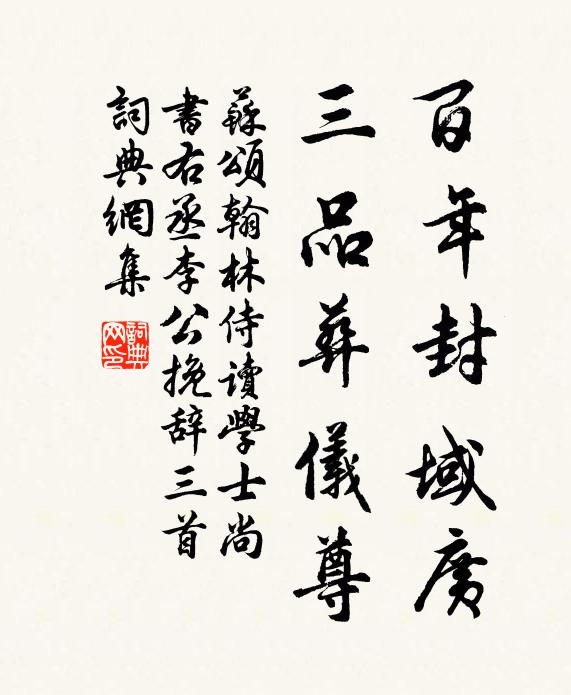 百年封域廣
三品葬儀尊
蘇頌翰林侍讀學士尚
書右丞李公挽辞三首
詞典網集
詞典
网印